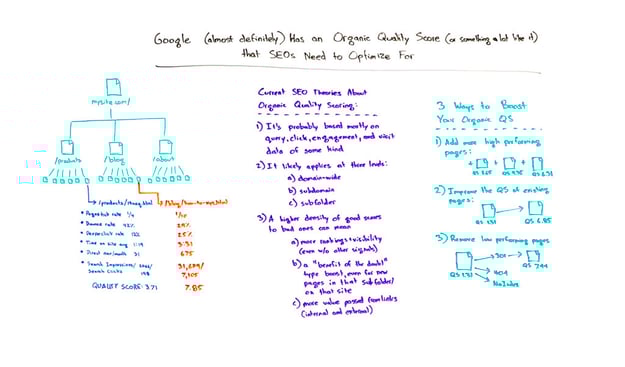 Google (almost definitely) Has an Organic Quality Score (or something a lot like it)
that SEOs Need to Optimize For
mysite.com/
/products
/blog
/about
/products/
/blog/
• Pogostick rate
• Bounce rate
• Deeper click rate
• Time on site avg 1:19
• Direct nav/month 31
• Search Impressions/
Search Clicks
QUALITY SCORE: 3.71
29%
25%
3:31
675
7,105
7.85
Current SEO Theories About
Organic Quality Scoring:
1) It's probably based mostly on
query, click, engagement, and visit
data of some kind
2) It likely applies at three levels:
a) domain-wide
b) subdomain
c) subfolder
3) A higher density of good scores
to bad ones can mean
a) more rankings + visibility
(even w/o other signals)
b) a "benefit of the doubt"
type boost, even for new
pages in that subfolder/
on that site
c) more value passed from links
(internal and external)
3 Ways to Boost
Your Organic QS
1) Add more high performing
pages:
+ + +
2) Improve the QS of existing
pages:
QS 6.85
3) Remove low performing pages
301
QS 7.44
404
NoIndex